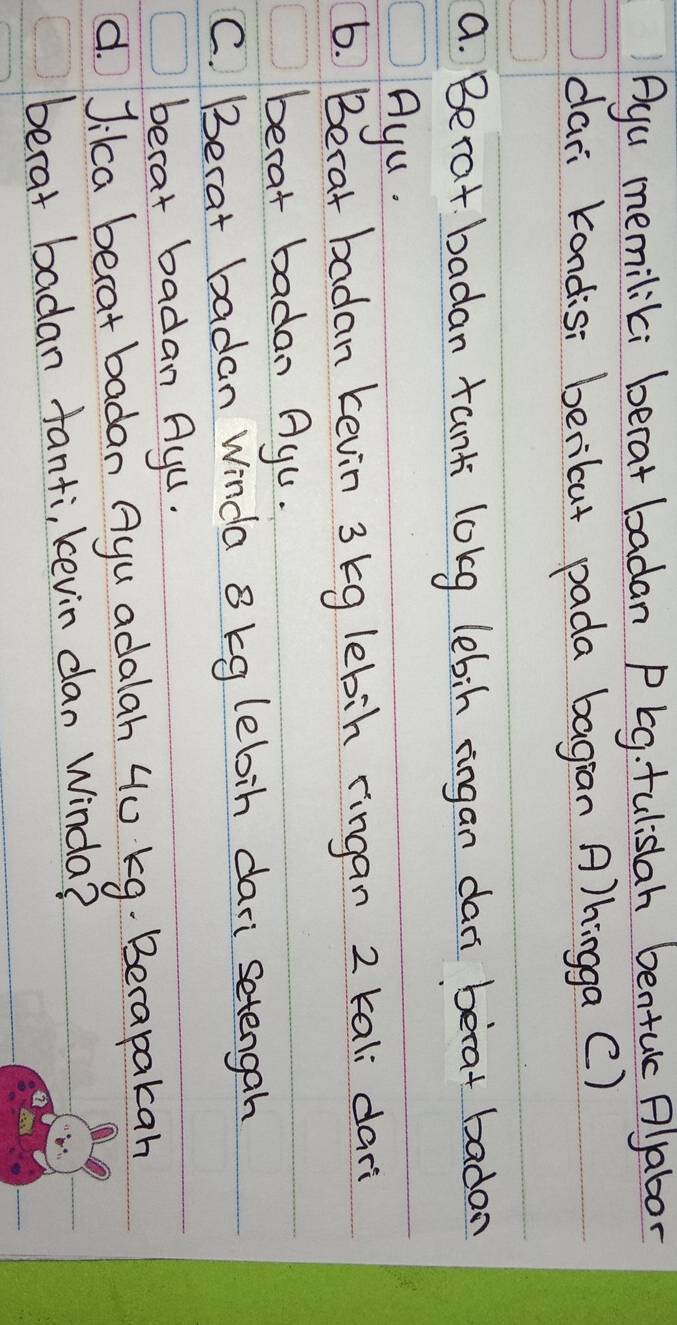 Ayu memiliki berat badan P kg. tulislah bentuk Aljabar
dari kondisi berikut pada bagian A) hingga C)
a. Berat badan tanti 10kg lebih ringan dari berat badan
Ayu.
b. Berat badan kevin 3 kg lebih ringan 2 kali dari
berat badan Ayu.
C. Berat badan Winda 8 kg lebih dari setengah
berat badan Ayu.
d. Jika berat badan Ayu adalah 40 kg. Berapakah
berat badan tanti, kevin dan Winda?